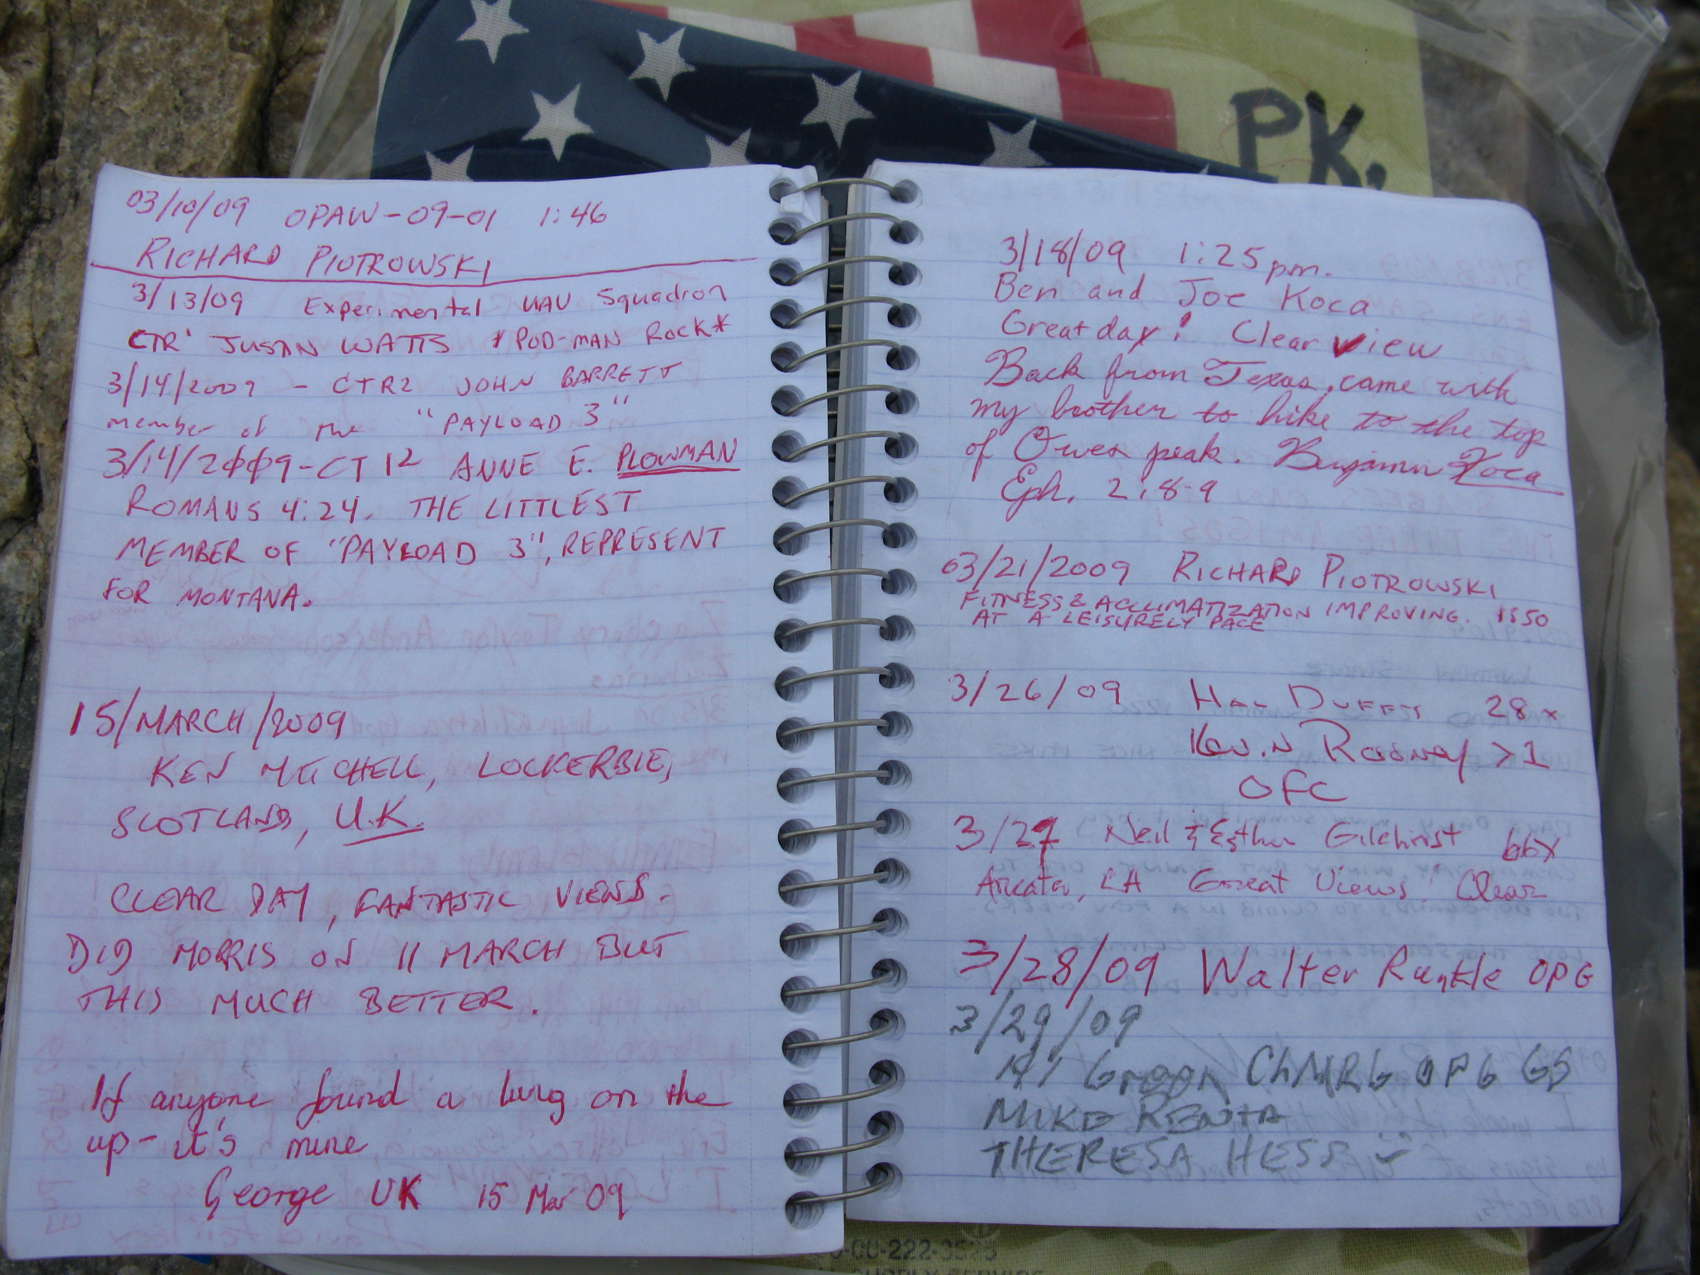 PK.
03/10/09 OPAW-09-01 1:46
RICHARD PIOTROWSKI
3/13/09 Experimental UAV Squadron
CTR' JUSTIN WATTS *POD-MAN ROCK*
3/14/2009 - CTR2 JOHN BARRETT
member of the "PAYLOAD 3"
3/14/2009-CT12 ANNE E. PLOWMAN
ROMANS 4:24. THE LITTLEST
MEMBER OF "PAYLOAD 3", REPRESENT
FOR MONTANA.
15/MARCH/2009
KEN MITCHELL, LOCKERBIE,
SCOTLAND, U.K.
CLEAR DAY, FANTASTIC VIEWS.
DID MORRIS ON 11 MARCH BUT
THIS MUCH BETTER.
If anyone found a lung on the
up - it's mine
George UK 15 Mar 09
3/18/09 1:25 pm.
Ben and Joe Koca
Great day! Clear view
Back from Texas, came with
my brother to hike to the top
of Owen peak. Benjamin Koca
Eph. 2:8-9
03/21/2009 RICHARD PIOTROWSKI
FITNESS & ACCLIMATIZATION IMPROVING. 1350
AT A LEISURELY PACE
3/26/09 HAL DUFFY 28x
Kevin Rooney >1
OFC
3/27 Neil & Esther Gilchrist 66x
Arcata, CA Great Views, Clear
3/28/09 Walter Runkle OPG
3/29/09
Green OPG GS
MIKE RENTA
THERESA HESS
00-222-3525